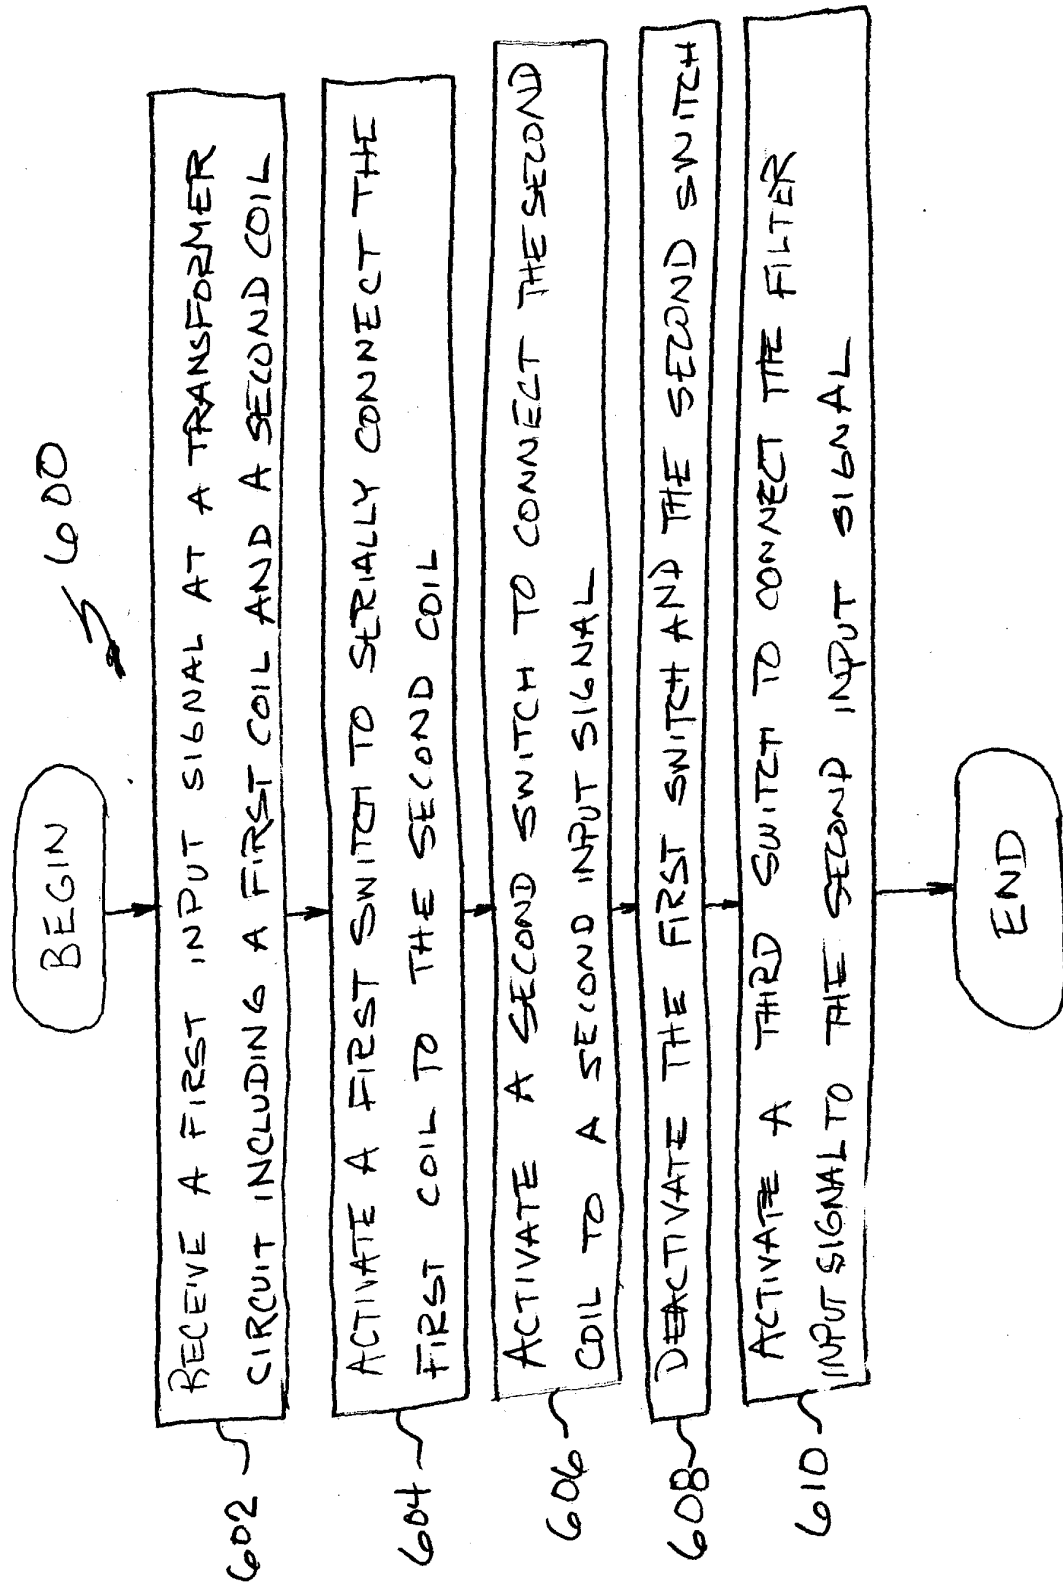 600
BEGIN
602
RECEIVE A FIRST INPUT SIGNAL AT A TRANSFORMER
CIRCUIT INCLUDING A FIRST COIL AND A SECOND COIL
604
ACTIVATE A FIRST SWITCH TO SERIALLY CONNECT THE
FIRST COIL TO THE SECOND COIL
606
ACTIVATE A SECOND SWITCH TO CONNECT THE SECOND
COIL TO A SECOND INPUT SIGNAL
608
DEACTIVATE THE FIRST SWITCH AND THE SECOND SWITCH
610
ACTIVATE A THIRD SWITCH TO CONNECT THE FILTER
INPUT SIGNAL TO THE SECOND INPUT SIGNAL
END